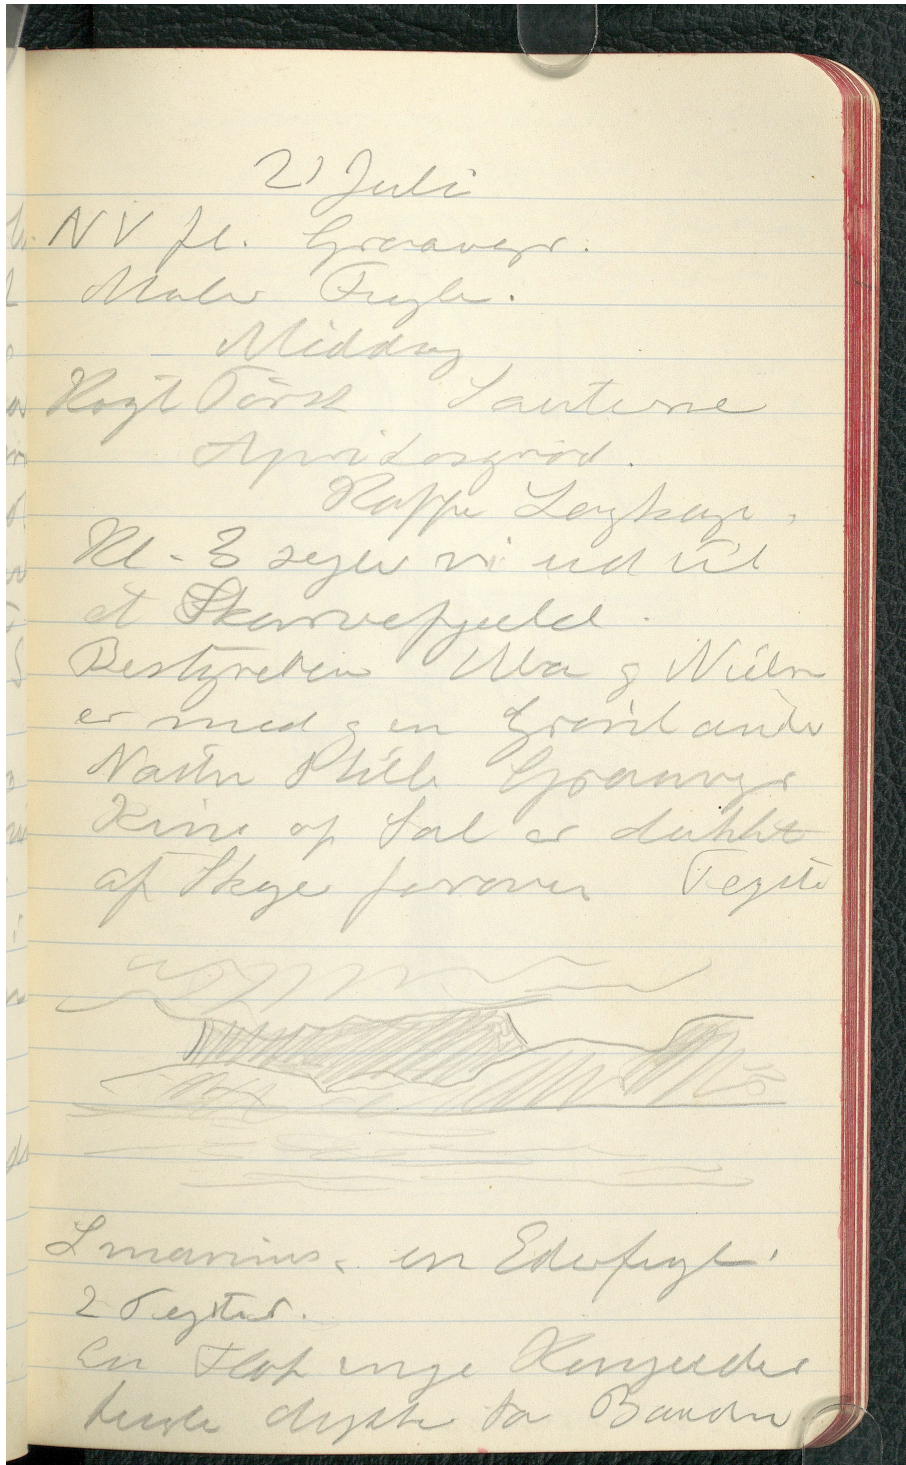 21 Juli
NV fl. Graavejr.
Maler Fugle.
Middag
Kogt Torsk Sauterne
Apricosgrød.
Kaffe Lagkage,
Kl - 3 sejler vi ud til
et Skarvefjeld.
Bestyreren og
er med og en Grønlænder
Næsten Stille Graavejr
af Sol er dækket
af Skyer foroven Tejste
L marinus, en Ederfugl.
2 Tejster.
En Flok unge Kongeeder
dykke for Baaden